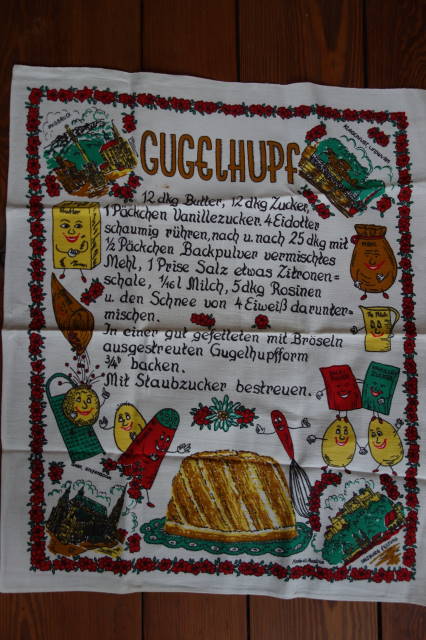 GUGELHUPF
12 dkg Butter, 12 dkg Zucker,
1 Päckchen Vanillezucker. 4 Eidotter
schaumig rühren, nach u. nach 25 dkg mit
½ Päckchen Backpulver vermischtes
Mehl, 1 Prise Salz etwas Zitronen=
schale, ⅛ l Milch, 5 dkg Rosinen
u. den Schnee von 4 Eiweiß darunter-
mischen.
In einer gut gefetteten mit Bröseln
ausgestreuten Gugelhupfform
¾ʰ backen.
Mit Staubzucker bestreuen.